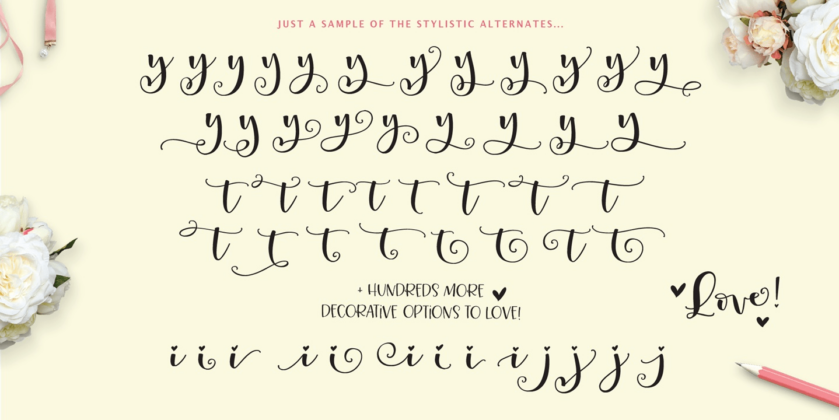 JUST A SAMPLE OF THE STYLISTIC ALTERNATES...
y y y y y y y y y y y y
y y y y y y y y y
t t t t t t t t
t t t t t t t t
+ HUNDREDS MORE
DECORATIVE OPTIONS TO LOVE!
Love!
i i i i i i i i i j j j j